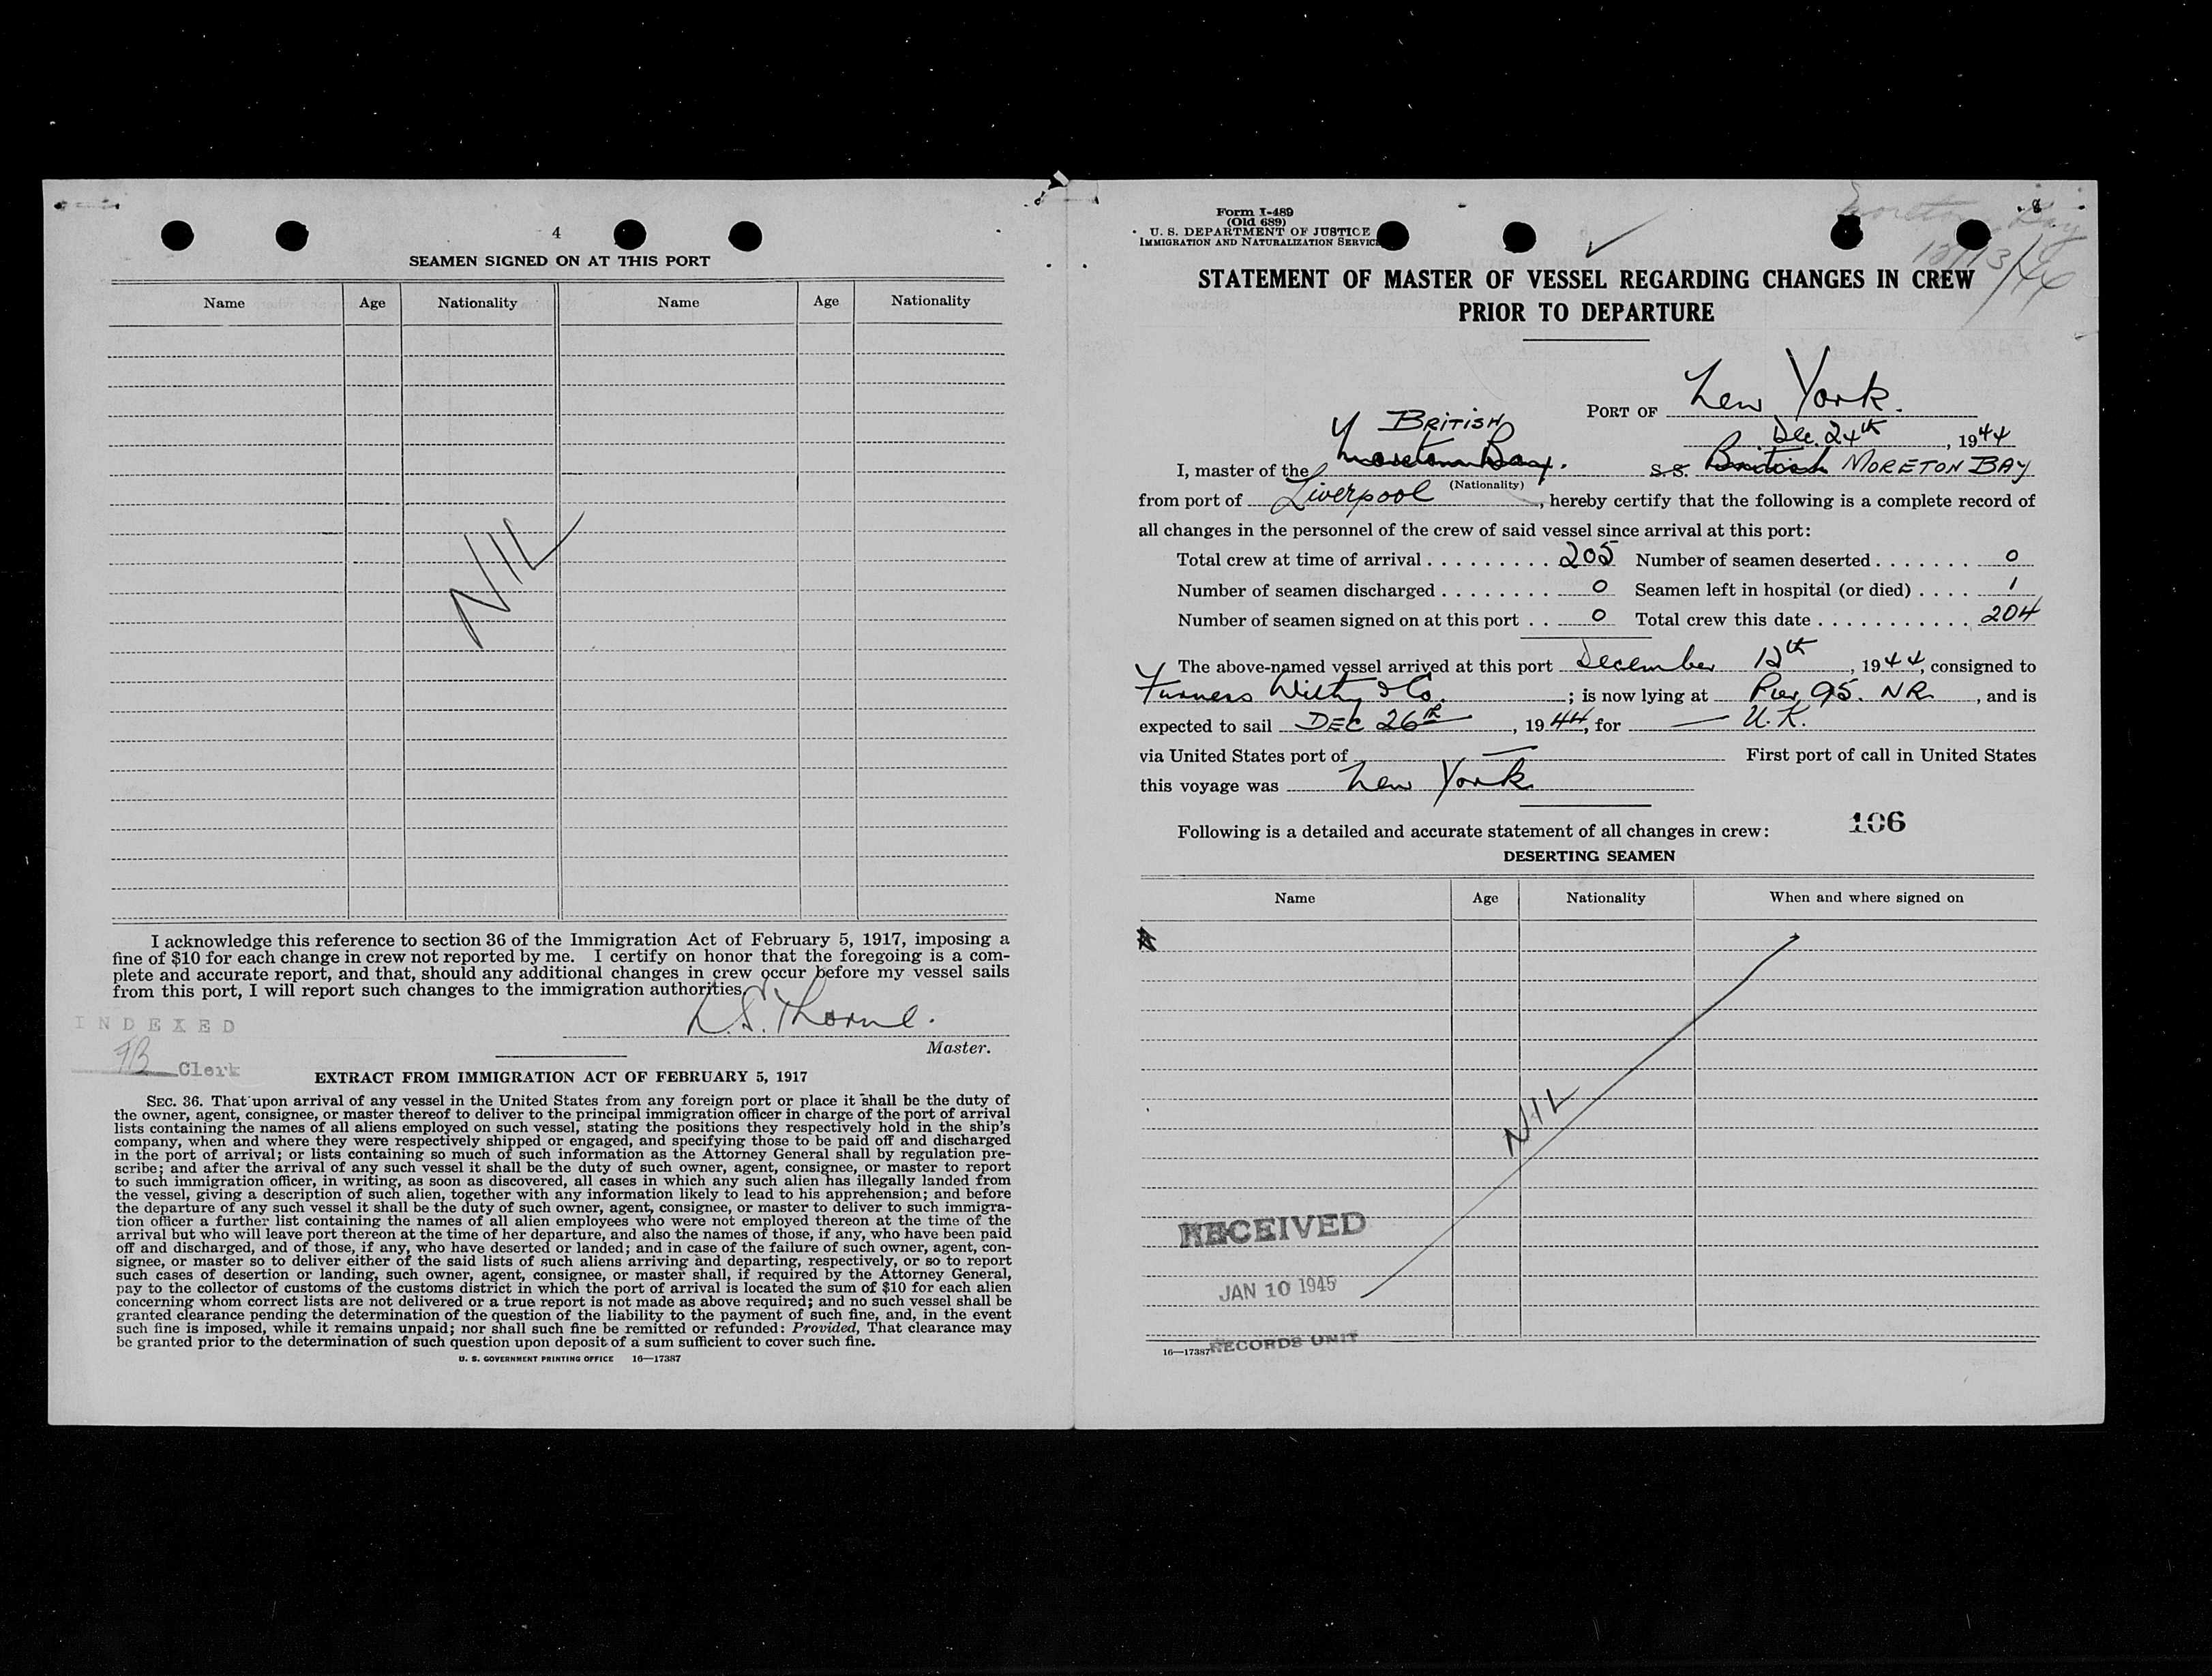 4
SEAMEN SIGNED ON AT THIS PORT
Name Age Nationality Name Age Nationality
NIL
I acknowledge this reference to section 36 of the Immigration Act of February 5, 1917, imposing a
fine of $10 for each change in crew not reported by me. I certify on honor that the foregoing is a com-
plete and accurate report, and that, should any additional changes in crew occur before my vessel sails
from this port, I will report such changes to the immigration authorities.
Thorne.
Master.
INDEXED
Clerk
EXTRACT FROM IMMIGRATION ACT OF FEBRUARY 5, 1917
SEC. 36. That upon arrival of any vessel in the United States from any foreign port or place it shall be the duty of
the owner, agent, consignee, or master thereof to deliver to the principal immigration officer in charge of the port of arrival
lists containing the names of all aliens employed on such vessel, stating the positions they respectively hold in the ship's
company, when and where they were respectively shipped or engaged, and specifying those to be paid off and discharged
in the port of arrival; or lists containing so much of such information as the Attorney General shall by regulation pre-
scribe; and after the arrival of any such vessel it shall be the duty of such owner, agent, consignee, or master to report
to such immigration officer, in writing, as soon as discovered, all cases in which any such alien has illegally landed from
the vessel, giving a description of such alien, together with any information likely to lead to his apprehension; and before
the departure of any such vessel it shall be the duty of such owner, agent, consignee, or master to deliver to such immigra-
tion officer a further list containing the names of all alien employees who were not employed thereon at the time of the
arrival but who will leave port thereon at the time of her departure, and also the names of those, if any, who have been paid
off and discharged, and of those, if any, who have deserted or landed; and in case of the failure of such owner, agent, con-
signee, or master so to deliver either of the said lists of such aliens arriving and departing, respectively, or so to report
such cases of desertion or landing, such owner, agent, consignee, or master shall, if required by the Attorney General,
pay to the collector of customs of the customs district in which the port of arrival is located the sum of $10 for each alien
concerning whom correct lists are not delivered or a true report is not made as above required; and no such vessel shall be
granted clearance pending the determination of the question of the liability to the payment of such fine, and, in the event
such fine is imposed, while it remains unpaid; nor shall such fine be remitted or refunded: Provided, That clearance may
be granted prior to the determination of such question upon deposit of a sum sufficient to cover such fine.
U. S. GOVERNMENT PRINTING OFFICE 16—17387
Form I-489
(Old 689)
U. S. DEPARTMENT OF JUSTICE
IMMIGRATION AND NATURALIZATION SERVICE
8
Moreton Bay
12/13/44
STATEMENT OF MASTER OF VESSEL REGARDING CHANGES IN CREW
PRIOR TO DEPARTURE
PORT OF New York.
Dec. 24th, 1944
BRITISH
I, master of the Moreton Bay. S.S. British MORETON BAY
(Nationality)
from port of Liverpool, hereby certify that the following is a complete record of
all changes in the personnel of the crew of said vessel since arrival at this port:
Total crew at time of arrival . . . . . . . . . 205 Number of seamen deserted . . . . . . . 0
Number of seamen discharged . . . . . . . . 0 Seamen left in hospital (or died) . . . . 1
Number of seamen signed on at this port . . 0 Total crew this date . . . . . . . . . . . 204
The above-named vessel arrived at this port December 12th, 1944, consigned to
Furness Withy & Co.; is now lying at Pier 95. NR, and is
expected to sail DEC 26th, 1944, for — U.K.
via United States port of — First port of call in United States
this voyage was New York
106
Following is a detailed and accurate statement of all changes in crew:
DESERTING SEAMEN
Name Age Nationality When and where signed on
NIL
RECEIVED
JAN 10 1945
RECORDS UNIT
16—17387